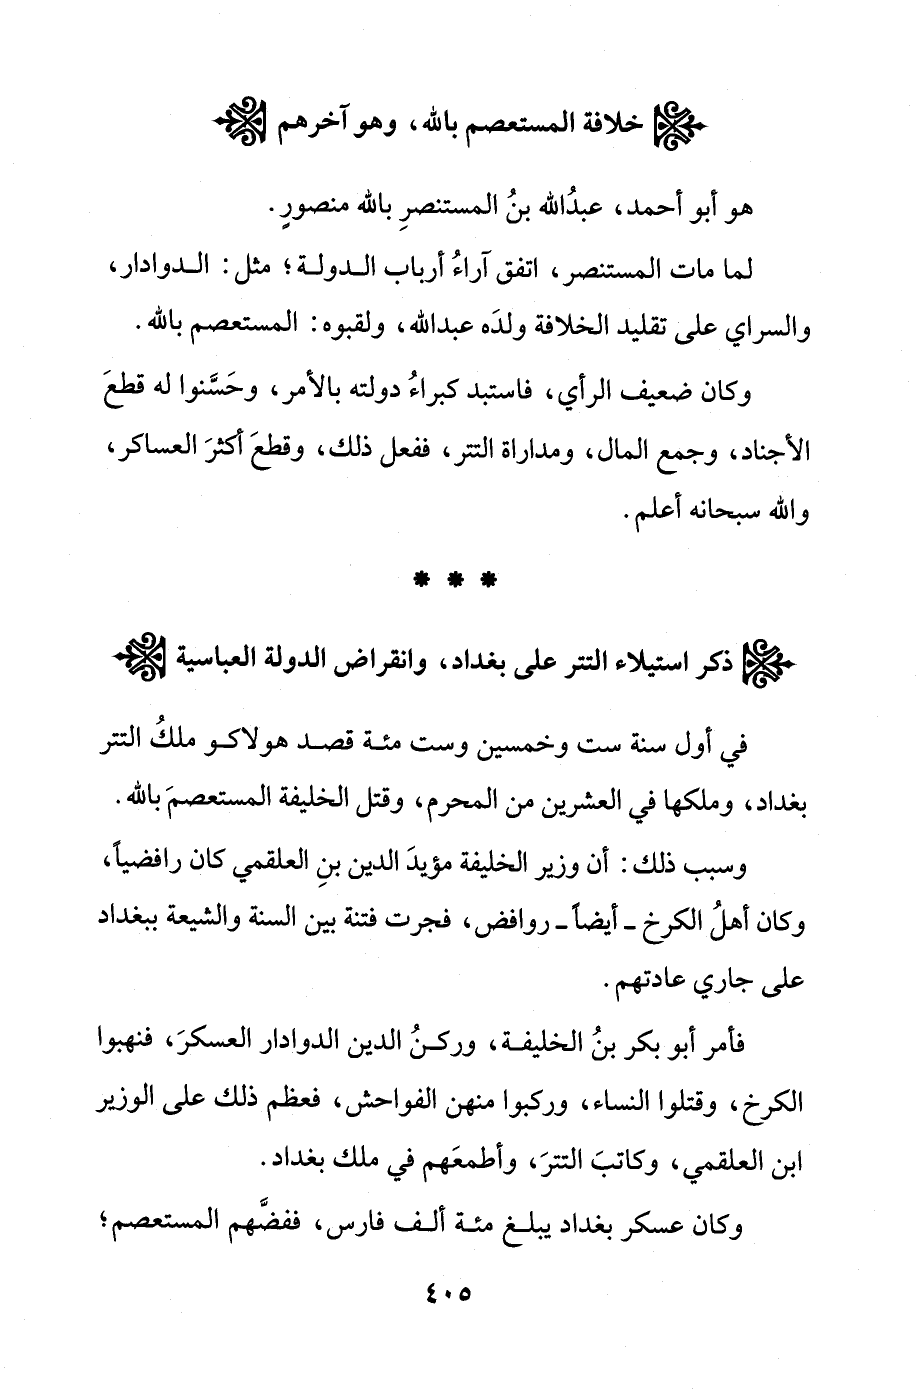 خلافة المستعصم بالله، وهو آخرهم
هو أبو أحمد، عبدُالله بنُ المستنصرِ بالله منصورٍ.
لما مات المستنصر، اتفق آراءُ أرباب الدولة؛ مثل: الدوادار،
والسراي على تقليد الخلافة ولدَه عبدالله، ولقبوه: المستعصم بالله.
وكان ضعيف الرأي، فاستبد كبراءُ دولته بالأمر، وحَسَّنوا له قطعَ
الأجناد، وجمع المال، ومداراة التتر، ففعل ذلك، وقطعَ أكثرَ العساكر،
والله سبحانه أعلم.
* * *
ذكر استيلاء التتر على بغداد، وانقراض الدولة العباسية
في أول سنة ست وخمسين وست مئة قصد هولاكو ملكُ التتر
بغداد، وملكها في العشرين من المحرم، وقتل الخليفة المستعصمَ بالله.
وسبب ذلك: أن وزير الخليفة مؤيدَ الدين بنِ العلقمي كان رافضياً،
وكان أهلُ الكرخ - أيضاً - روافض، فجرت فتنة بين السنة والشيعة ببغداد
على جاري عادتهم.
فأمر أبو بكر بنُ الخليفة، وركنُ الدين الدوادار العسكرَ، فنهبوا
الكرخ، وقتلوا النساء، وركبوا منهن الفواحش، فعظم ذلك على الوزير
ابن العلقمي، وكاتبَ التترَ، وأطمعَهم في ملك بغداد.
وكان عسكر بغداد يبلغ مئة ألف فارس، ففضَّهم المستعصم؛
٤٠٥